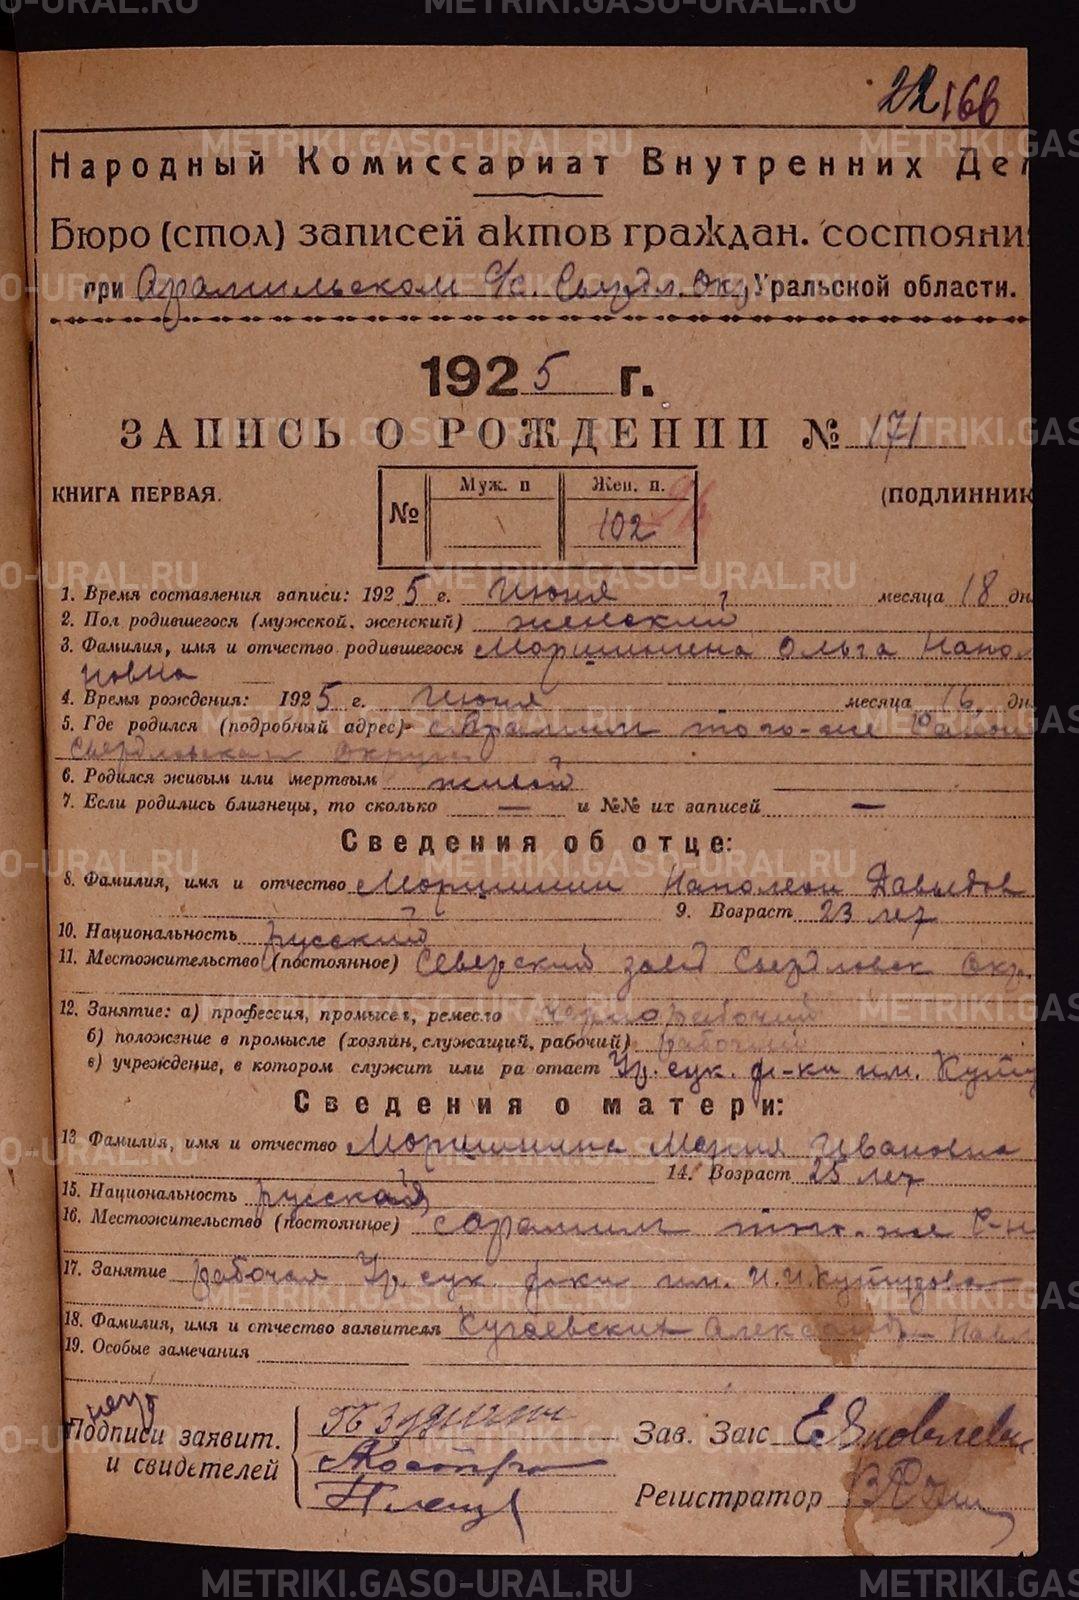 22 166
Народный Комиссариат Внутренних Дел
Бюро (стол) записей актов граждан. состояни
при Арамильском Свердл. Окр Уральской области.
1925 г.
ЗАПИСЬ О РОЖДЕНИИ № 171
КНИГА ПЕРВАЯ.
(ПОДЛИННИК
№ Муж. п Жен. п.
102
1. Время составления записи: 1925 г. Июня месяца 18 дн
2. Пол родившегося (мужской, женский) женский
3. Фамилия, имя и отчество родившегося Моршинина Ольга Напо
новна
4. Время рождения: 1925 г. Июня месяца 16 дн
5. Где родился (подробный адрес) с Арамил того-же Район
Свердловскаго округа
6. Родился живым или мертвым живой
7. Если родились близнецы, то сколько — и №№ их записей —
Сведения об отце:
8. Фамилия, имя и отчество Моршинин Наполеон Давыдов
9. Возраст 23 лет
10. Национальность русский
11. Местожительство (постоянное) Северский завод Свердловск окр.
12. Занятие: а) профессия, промысел, ремесло чернорабочий
б) положение в промысле (хозяин, служащий, рабочий) рабочий
в) учреждение, в котором служит или ра отает Ур. сук. ф-ки им.
Сведения о матери:
13 Фамилия, имя и отчество Моршинина Мария Ивановна
14. Возраст 25 лет
15. Национальность русская
16. Местожительство (постоянное) с Арамил того-же Р-н
17. Занятие рабочая Ур. сук. ф-ки им.
18. Фамилия, имя и отчество заявителя Кугаевских
19. Особые замечания
нет
Подписи заявит.
и свидетелей
Зав. Загс Е Яковлева
Регистратор
METRIKI.GASO-URAL.RU